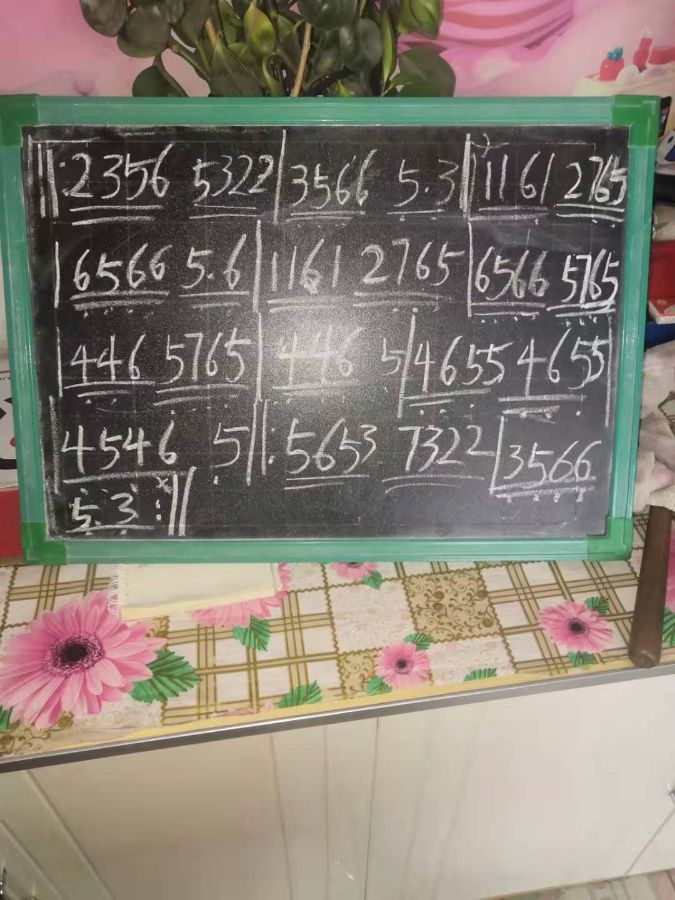 ‖:2356 5322|3566 5.3‖1161 2765
|6566 5.6|1161 2765|6566 5765
|446 5765|446 5|4655 4655|
4546 5‖:5653 7322|3566
5.3:‖